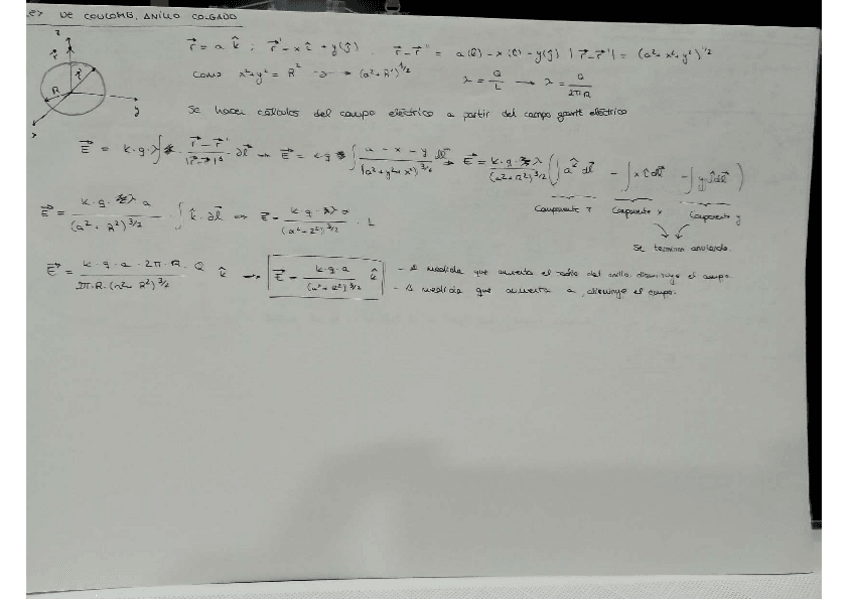 DE COULOMB, ANILLO CARGADO
r⃗ = a k̂ ; r⃗' = x î + y(ĵ) . r⃗ - r⃗' = a(k̂) - x(î) - y(ĵ) |r⃗ - r⃗'| = (a² + x² + y²)^1/2
Como x² + y² = R² → (a² + R²)^1/2 λ = Q/L → λ = Q/2πR
Se hacen cálculos del campo eléctrico a partir del campo eléctrico
z
y
x
R
E⃗ = k·q·λ ∫ (r⃗ - r⃗')/|r⃗ - r⃗'|³ · dl⃗ → E⃗ = k q ∫ (a - x - y)/(a² + y² + x²)^3/2 dl⃗ → E⃗ = k·q·λ/(a² + R²)^3/2 (∫ a k̂ dl⃗ - ∫ x î dl⃗ - ∫ y ĵ dl⃗)
Componente z Componente x Componente y
Se terminan anulando.
E⃗ = k·q·λ a/(a² + R²)^3/2 · ∫ k̂ · dl⃗ → E⃗ = k·q·λ a/(a² + R²)^3/2 · L
E⃗ = k·q·a·2π·R·Q/2π·R·(a² + R²)^3/2 k̂ → E⃗ = k·q·a/(a² + R²)^3/2 k̂
- A medida que aumenta el radio del anillo disminuye el campo.
- A medida que aumenta a, disminuye el campo.